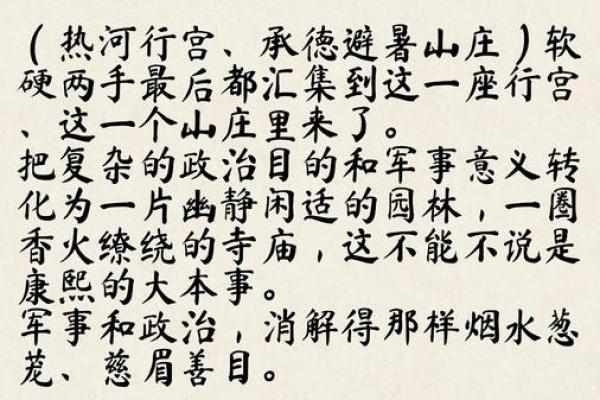 (热河行宫、承德避暑山庄)软
硬两手最后都汇集到这一座行宫
、这一个山庄里来了。
把复杂的政治目的和军事意义转
化为一片幽静闲适的园林,一圈
香火缭绕的寺庙,这不能不说是
康熙的大本事。
军事和政治,消解得那样烟水葱
茏、慈眉善目。